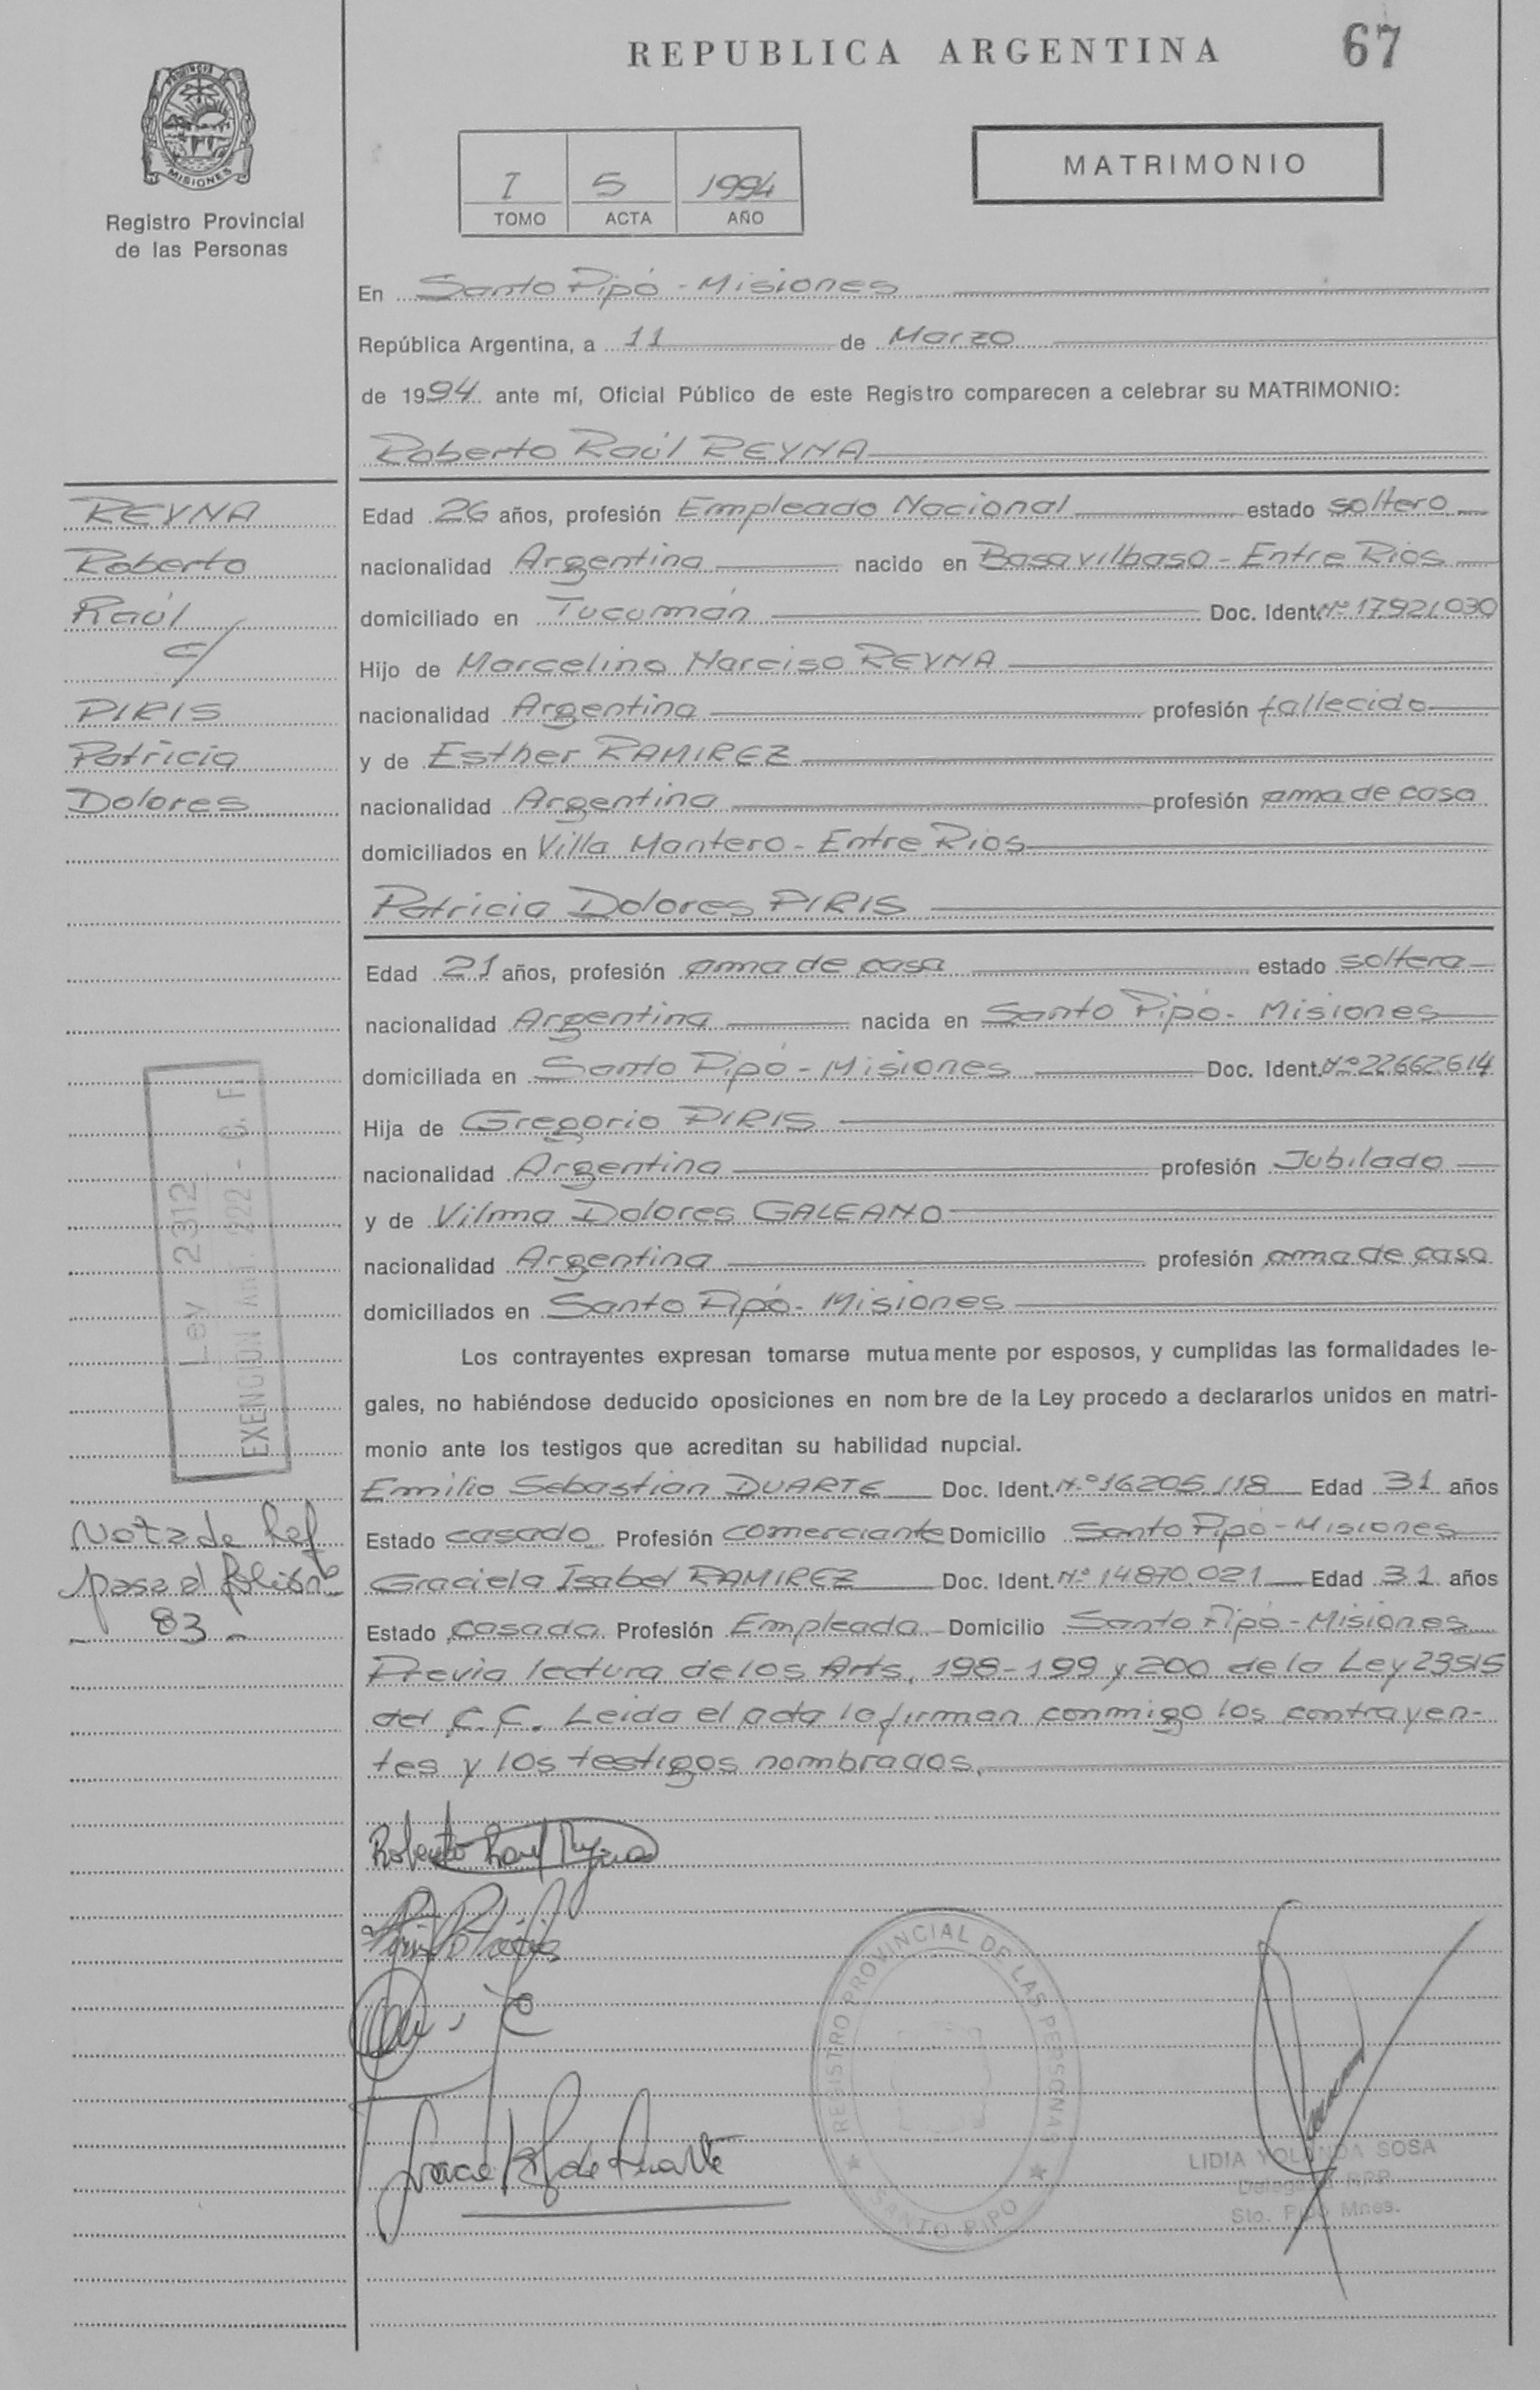 REPUBLICA ARGENTINA 67
PROVINCIA
MISIONES
Registro Provincial
de las Personas
I 5 1994
TOMO ACTA AÑO
MATRIMONIO
En Santo Pipó - Misiones
República Argentina, a 11 de Marzo
de 1994 ante mí, Oficial Público de este Registro comparecen a celebrar su MATRIMONIO:
Roberto Raúl REYNA
REYNA
Roberto
Raúl
c/
PIRIS
Patricia
Dolores
Edad 26 años, profesión Empleado Nacional estado soltero
nacionalidad Argentina nacido en Basavilbaso - Entre Rios
domiciliado en Tucumán Doc. Ident. Nº 17.921.030
Hijo de Marcelino Narciso REYNA
nacionalidad Argentina profesión fallecido
y de Esther RAMIREZ
nacionalidad Argentina profesión ama de casa
domiciliados en Villa Mantero - Entre Rios
Patricia Dolores PIRIS
Edad 21 años, profesión ama de casa estado soltera
nacionalidad Argentina nacida en Santo Pipó - Misiones
domiciliada en Santo Pipó - Misiones Doc. Ident. Nº 22662614
Hija de Gregorio PIRIS
nacionalidad Argentina profesión Jubilado
y de Vilma Dolores GALEANO
nacionalidad Argentina profesión ama de casa
domiciliados en Santo Pipó - Misiones
Ley 2312
EXENCION Art. 222 - C. F.
Los contrayentes expresan tomarse mutuamente por esposos, y cumplidas las formalidades le-
gales, no habiéndose deducido oposiciones en nombre de la Ley procedo a declararlos unidos en matri-
monio ante los testigos que acreditan su habilidad nupcial.
Emilio Sebastian DUARTE Doc. Ident. Nº 16.205.118 Edad 31 años
Estado casado Profesión comerciante Domicilio Santo Pipó - Misiones
Graciela Isabel RAMIREZ Doc. Ident. Nº 14.870.021 Edad 31 años
Estado casada Profesión Empleada Domicilio Santo Pipó - Misiones
Previa lectura de los Arts. 198-199 y 200 de la Ley 23515
del C.C. Leida el acta la firman conmigo los contrayen-
tes y los testigos nombrados.
Nota de Ref
pasa al folio nº
- 83 -
Roberto Raul Reyna
REGISTRO PROVINCIAL DE LAS PERSONAS
SANTO PIPO
de Duarte
LIDIA YOLANDA SOSA
Delegada RPP
Sto. Pipó Mnes.